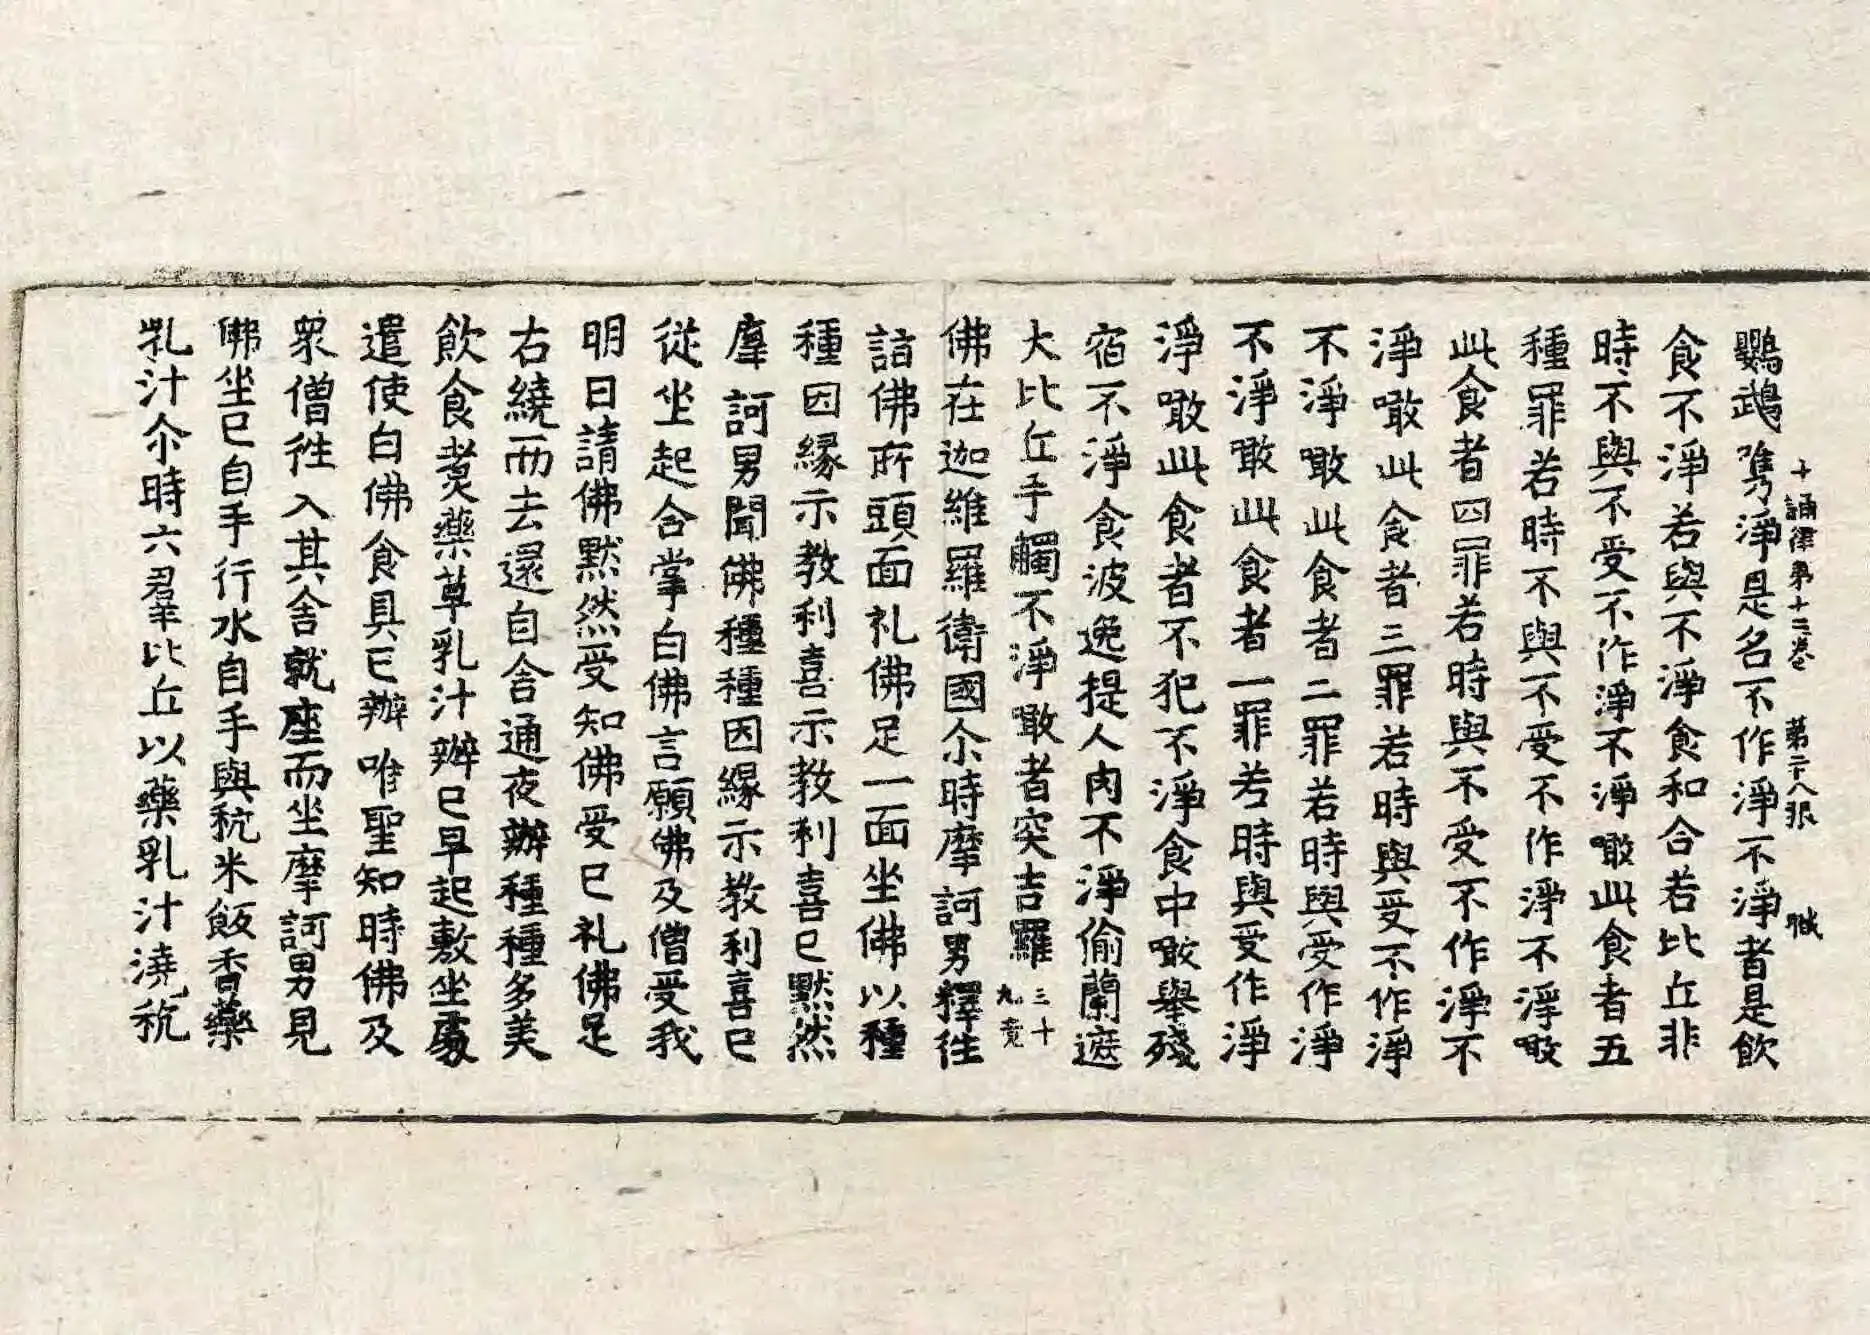 鸚鵡㗖淨是名不作淨不淨者是飲
十誦律第十三卷 第二十八張 職
食不淨若與不淨食和合若比丘非
時不與不受不作淨不淨噉此食者五
種罪若時不與不受不作淨不淨噉
此食者四罪若時與不受不作淨不
淨噉此食者三罪若時與受不作淨
不淨噉此食者二罪若時與受作淨
不淨噉此食者一罪若時與受作淨
淨噉此食者不犯不淨食中噉舉殘
宿不淨食波逸提人肉不淨偷蘭遮
大比丘手觸不淨噉者突吉羅 三十九竟
佛在迦維羅衛國尒時摩訶男釋往
詣佛所頭面礼佛足一面坐佛以種
種因緣示教利喜示教利喜已默然
摩訶男聞佛種種因緣示教利喜已
從坐起合掌白佛言願佛及僧受我
明日請佛默然受知佛受已礼佛足
右繞而去還自舍通夜辦種種多美
飲食煑藥草乳汁辦已早起敷坐處
遣使白佛食具已辦唯聖知時佛及
眾僧往入其舍就座而坐摩訶男見
佛坐已自手行水自手與秔米飯香藥
乳汁尒時六羣比丘以藥乳汁澆秔